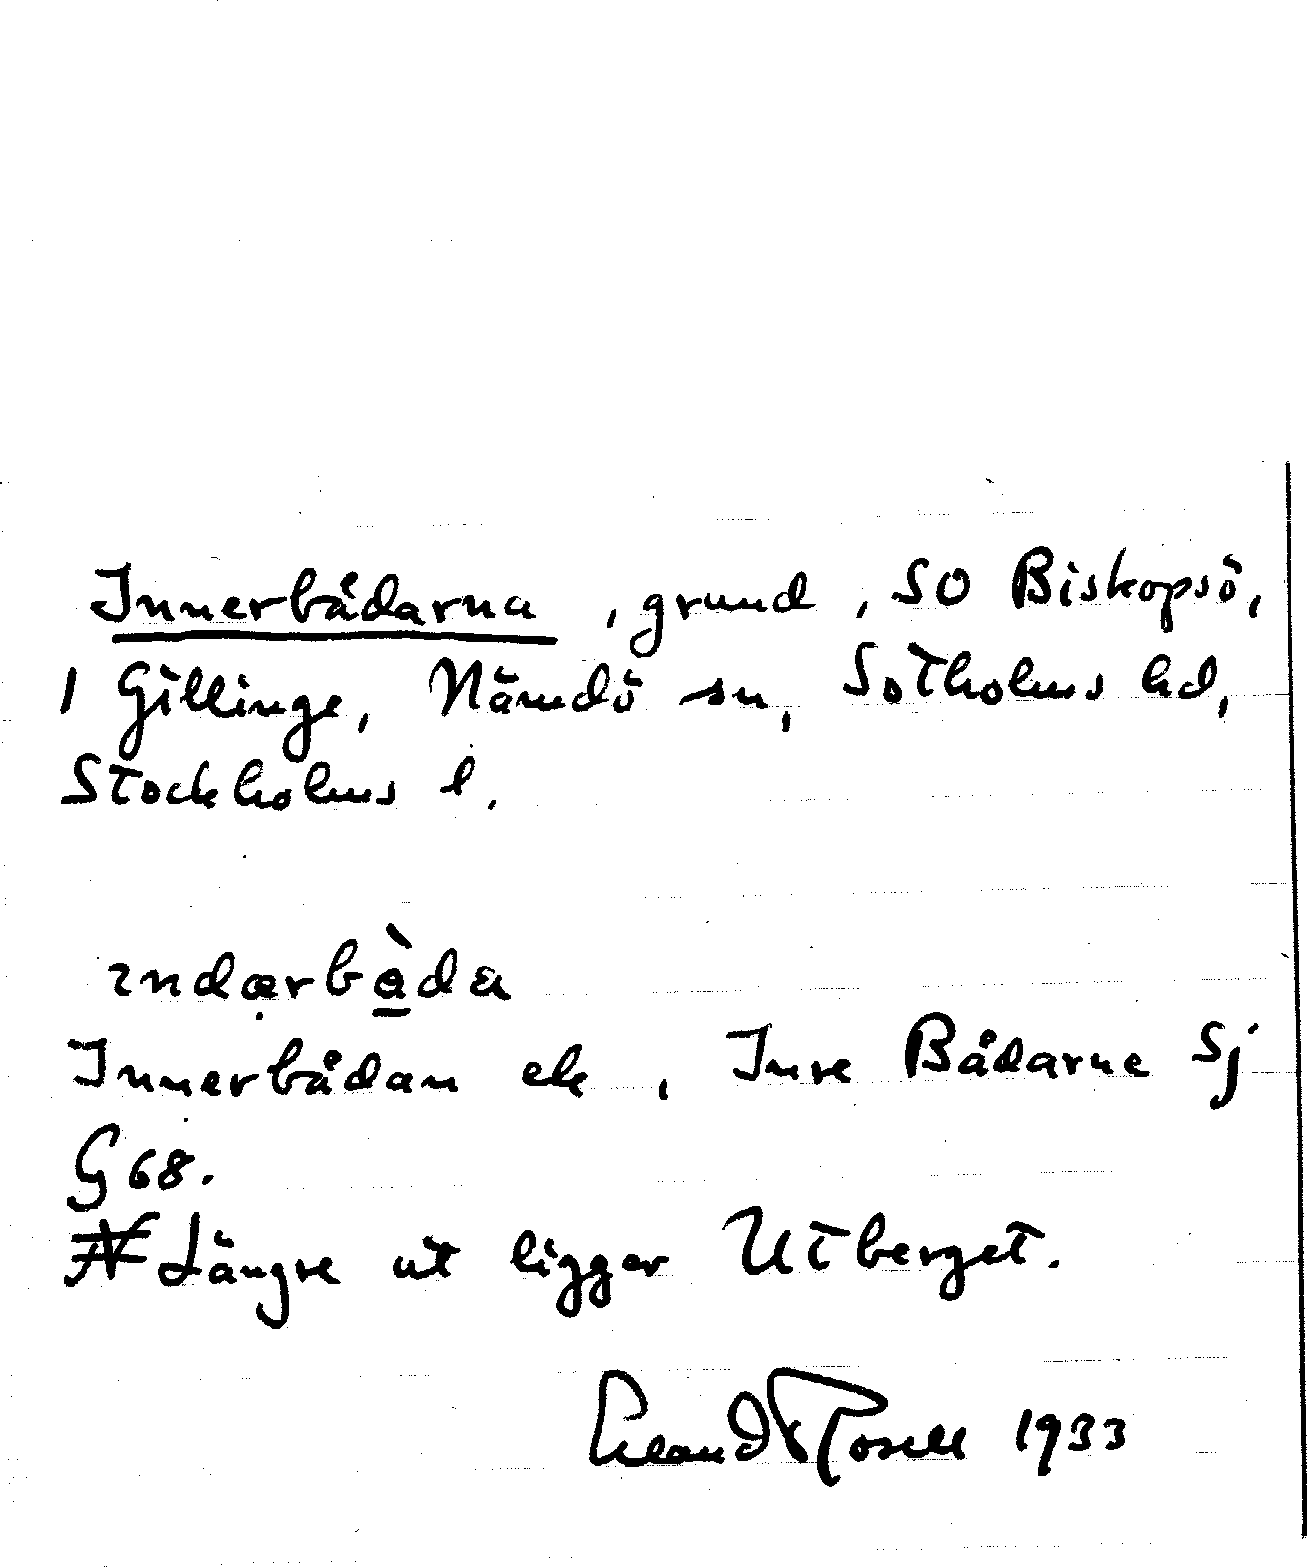 Innerbådarna, grund, SO Biskopsö,
1 Gillinge, Nämdö sn, Sotholms hd,
Stockholms l.
ındərbàda
Innerbådan ek, Inre Bådarne Sj
G 68.
Längre ut ligger Utberget.
Erland Rosell 1933